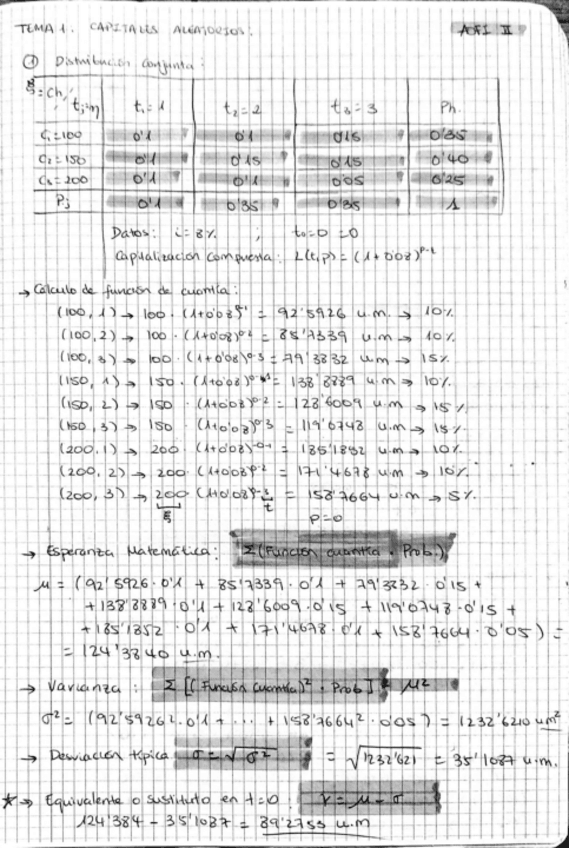 TEMA 1. CAPITALES ALEATORIOS: AOFI II
① Distribución conjunta:
ξ=Ch, tj=η t₁=1 t₂=2 t₃=3 Ph.
C₁=100 0'1 0'1 0'15 0'35
C₂=150 0'1 0'15 0'15 0'40
C₃=200 0'1 0'1 0'05 0'25
Pj 0'1 0'35 0'35 1
Datos: i=8% ; t₀=0=0
Capitalización compuesta: L(t,p) = (1+0'08)^(p-t)
→ Cálculo de función de cuantía:
(100, 1) → 100 · (1+0'08)^(0-1) = 92'5926 u.m. → 10%
(100, 2) → 100 · (1+0'08)^(0-2) = 85'7339 u.m → 10%
(100, 3) → 100 · (1+0'08)^(0-3) = 79'3832 u.m → 15%
(150, 1) → 150 · (1+0'08)^(0-1) = 138'8889 u.m → 10%
(150, 2) → 150 · (1+0'08)^(0-2) = 128'6009 u.m → 15%
(150, 3) → 150 · (1+0'08)^(0-3) = 119'0748 u.m → 15%
(200, 1) → 200 · (1+0'08)^(0-1) = 185'1852 u.m → 10%
(200, 2) → 200 · (1+0'08)^(0-2) = 171'4678 u.m → 10%
(200, 3) → 200 (1+0'08)^(0-3) = 158'7664 u.m → 5%
ξ t
p=0
→ Esperanza Matemática: Σ(Función cuantía · Prob.)
μ = (92'5926·0'1 + 85'7339·0'1 + 79'3832·0'15 +
+138'8889·0'1 + 128'6009·0'15 + 119'0748·0'15 +
+185'1852·0'1 + 171'4678·0'1 + 158'7664·0'05) =
= 124'3840 u.m.
→ Varianza: Σ[(Función cuantía)² · Prob] - μ²
σ² = (92'5926²·0'1 + ··· + 158'7664²·0'05) = 1232'6210 um²
→ Desviación típica σ = √σ² = √1232'621 = 35'1087 u.m.
★→ Equivalente o sustituto en t=0: V = μ - σ
124'384 - 35'1087 = 89'2753 u.m